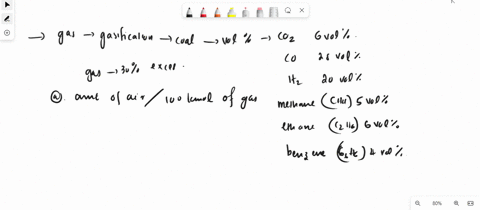 → gas → gasification → coal → vol % → CO2 6 vol %
CO 26 vol %
H2 20 vol %
gas → 30% excess
(a). amt of air / 100 kmol of gas
methane (CH4) 5 vol %
ethane (C2H6) 6 vol %
benzene (C6H6) 4 vol %
80%